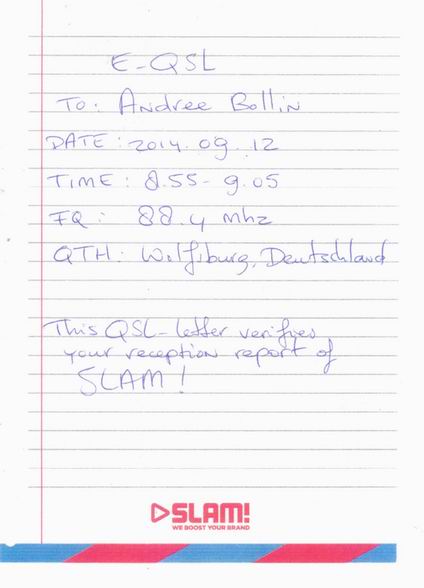 E-QSL
TO: Andree Bollin
DATE: 2014.09.12
TIME: 8.55-9.05
FQ: 88.4 mhz
QTH: Wolfsburg, Deutschland
This QSL-letter verifies
your reception report of
SLAM!
SLAM!
WE BOOST YOUR BRAND